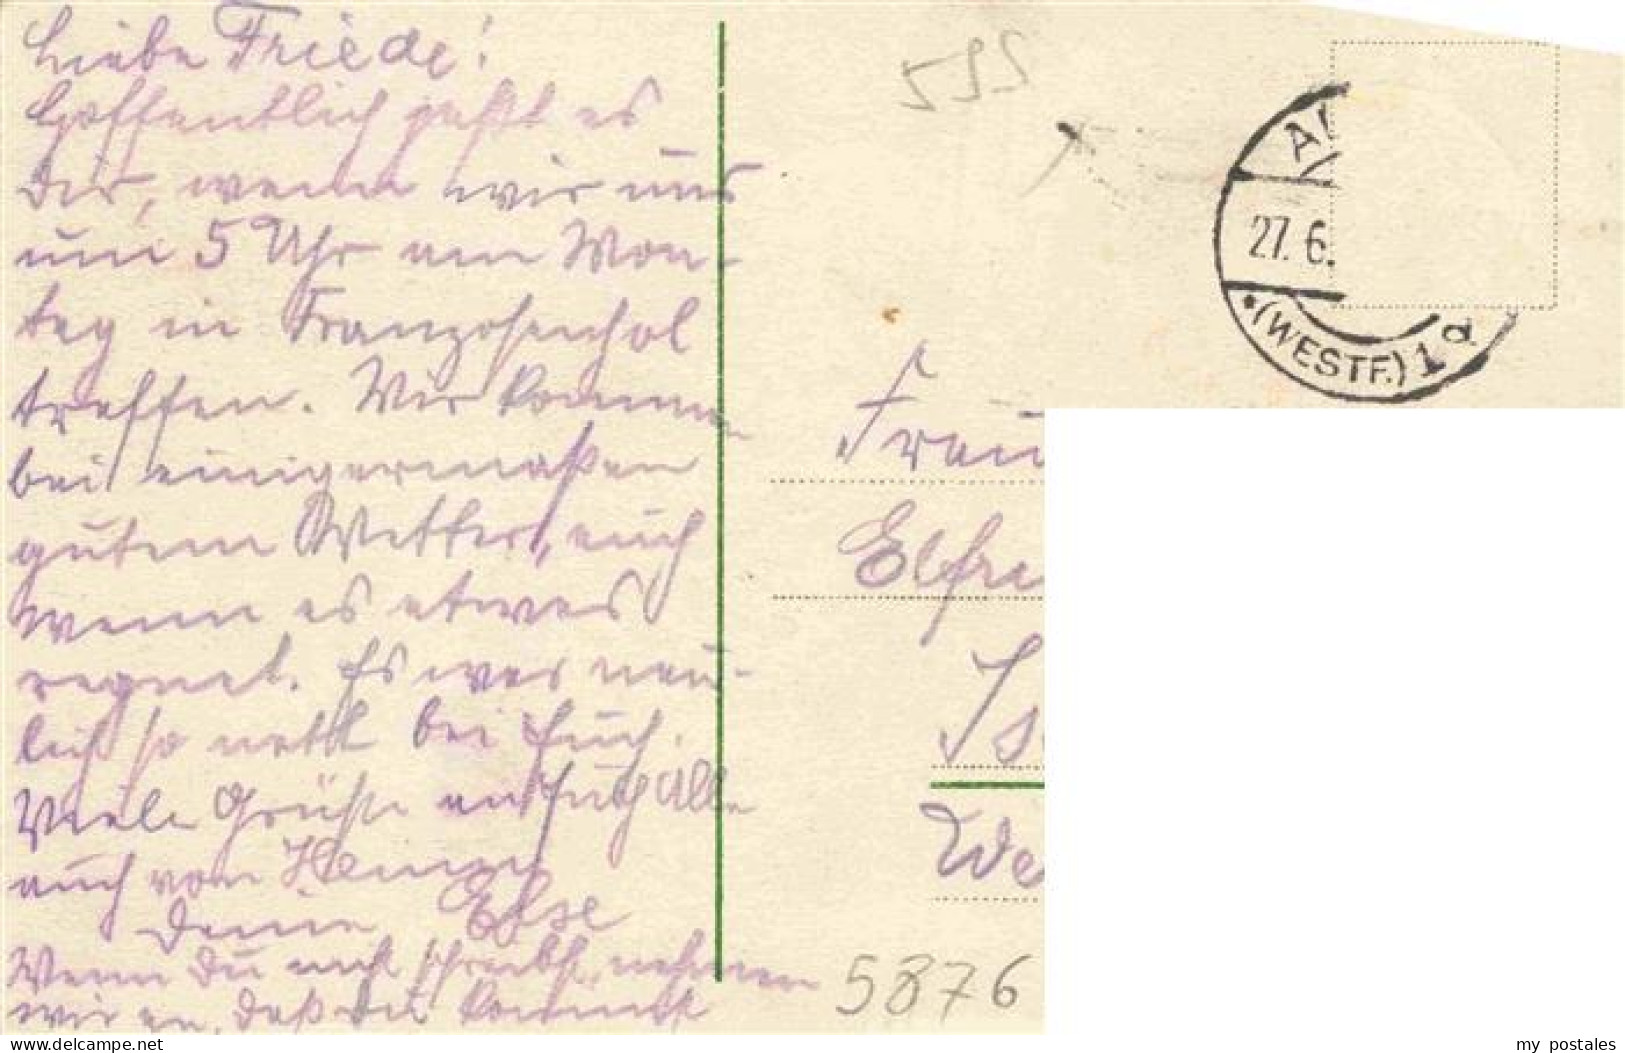 Liebe Friede!
Hoffentlich paßt es
Dir, wenn wir uns
um 5 Uhr am Mon-
tag in Franzosenhol
treffen. Wir kommen
bei einigermaßen
gutem Wetter, auch
wenn es etwas
regnet. Es war neu-
lich so nett bei Euch.
Viele Grüße an Euch Alle
auch von Henny
Deine Else
Wenn Du nicht schreibst, nehmen
wir an, daß Du kommst
595
AL
27. 6.
*(WESTF.) 1 d
Frau
Elfri
Is
We
5876
delcampe.net
my_postales